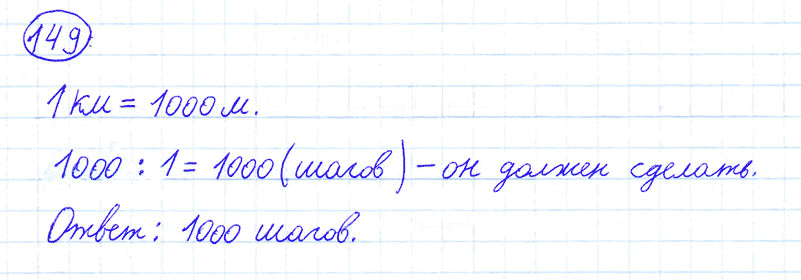 149
1 км = 1000 м.
1000 : 1 = 1000 (шагов) – он должен сделать.
Ответ: 1000 шагов.